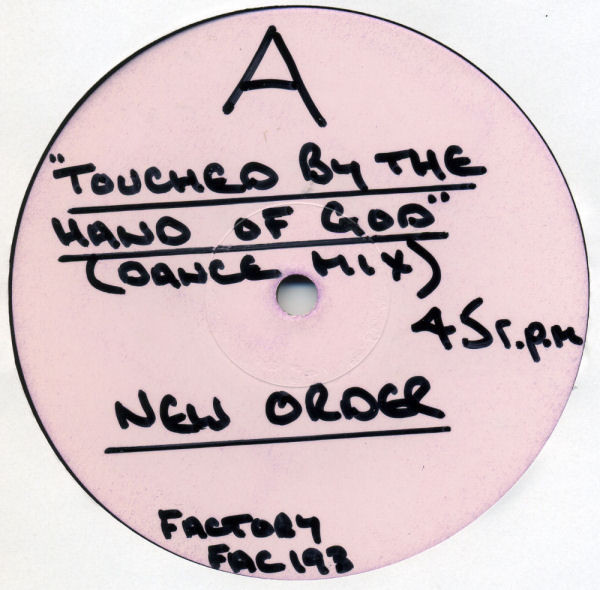 A
"TOUCHED By THE
HAND OF GOD"
(DANCE MIX)
45 r.p.m
NEW ORDER
FACTORY
FAC 193